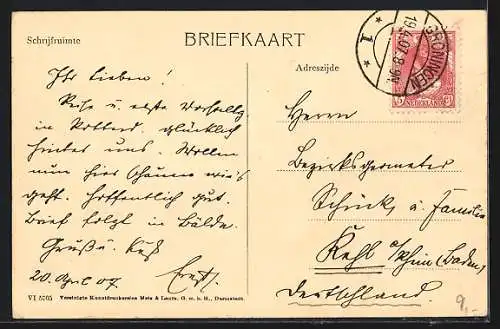 Schrijfruimte
BRIEFKAART
Adreszijde
GRONINGEN
19.4.07. 8-9N
1
NEDERLAND
Ihr Lieben!
Reise u. erste Vorstellg
in Rotterd. glücklich
hinter uns. Wollen
nun hier schauen wie's
geht. Hoffentlich gut.
Brief folgt in Bälde.
Gruß u. Kuß
20. April 07. Ernst.
Herrn
Bezirksgeometer
Schück, u. Familie
Kehl a/Rhein (Baden)
Deutschland.
VI 5705 Vereinigte Kunstdruckereien Metz & Lautz, G. m. b. H., Darmstadt.
9,-